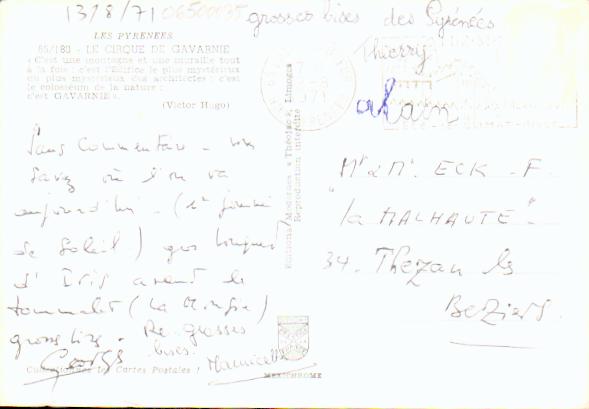 13/8/71 06500035
grosses bises des Pyrénées
Thierry
alain
LES PYRENEES
65/180 - LE CIRQUE DE GAVARNIE
« C'est une montagne et une muraille tout
à la fois ; c'est l'édifice le plus mystérieux
du plus mystérieux des architectes ; c'est
le colosseum de la nature ;
c'est GAVARNIE ».
(Victor Hugo)
Sans Commentaire - vous
Savez où l'on va
aujourd'hui - (1e journée
de Soleil)
d'Iris avant le
tourmalet (La Mongie)
grosses bises. Re-grosses
bises.
Georges Mauricette
Editions Modernes « Théojac », Limoges
Reproduction interdite
"Mr & Me. ECK - F.
"la MALHAUTE"
34. Thezan les
Beziers.
les Cartes Postales !
MEXICHROME